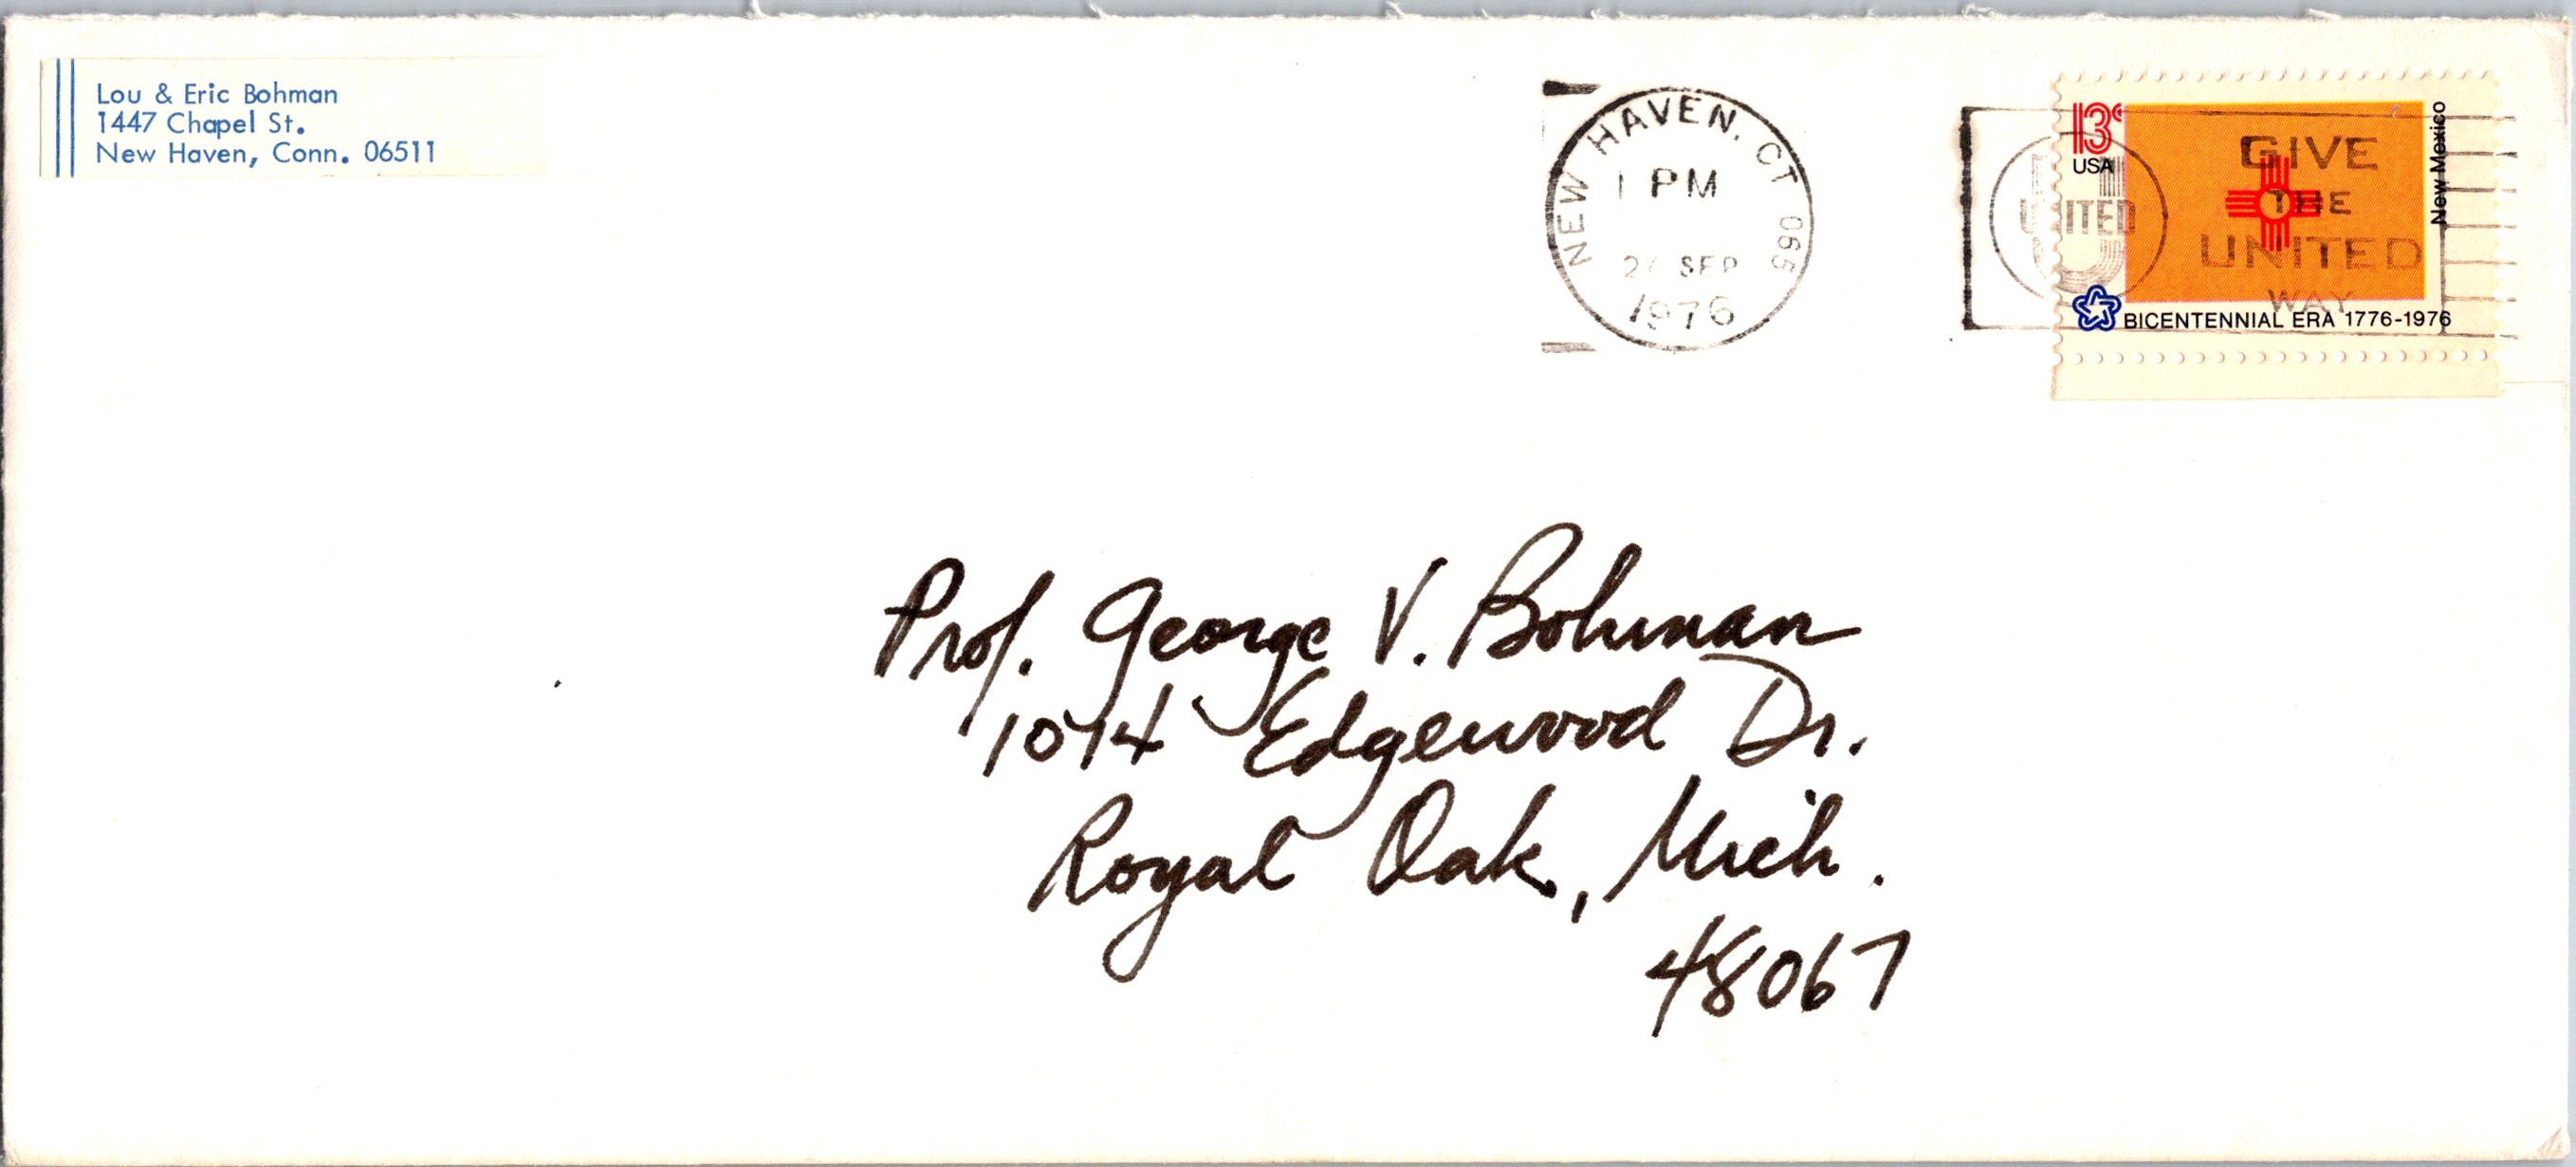 Lou & Eric Bohman
1447 Chapel St.
New Haven, Conn. 06511
NEW HAVEN, CT 065
1 PM
SEP
1976
UNITED
GIVE
THE
UNITED
WAY
13c
USA
New Mexico
BICENTENNIAL ERA 1776-1976
Prof. George V. Bohman
1074 Edgewood Dr.
Royal Oak, Mich.
48067